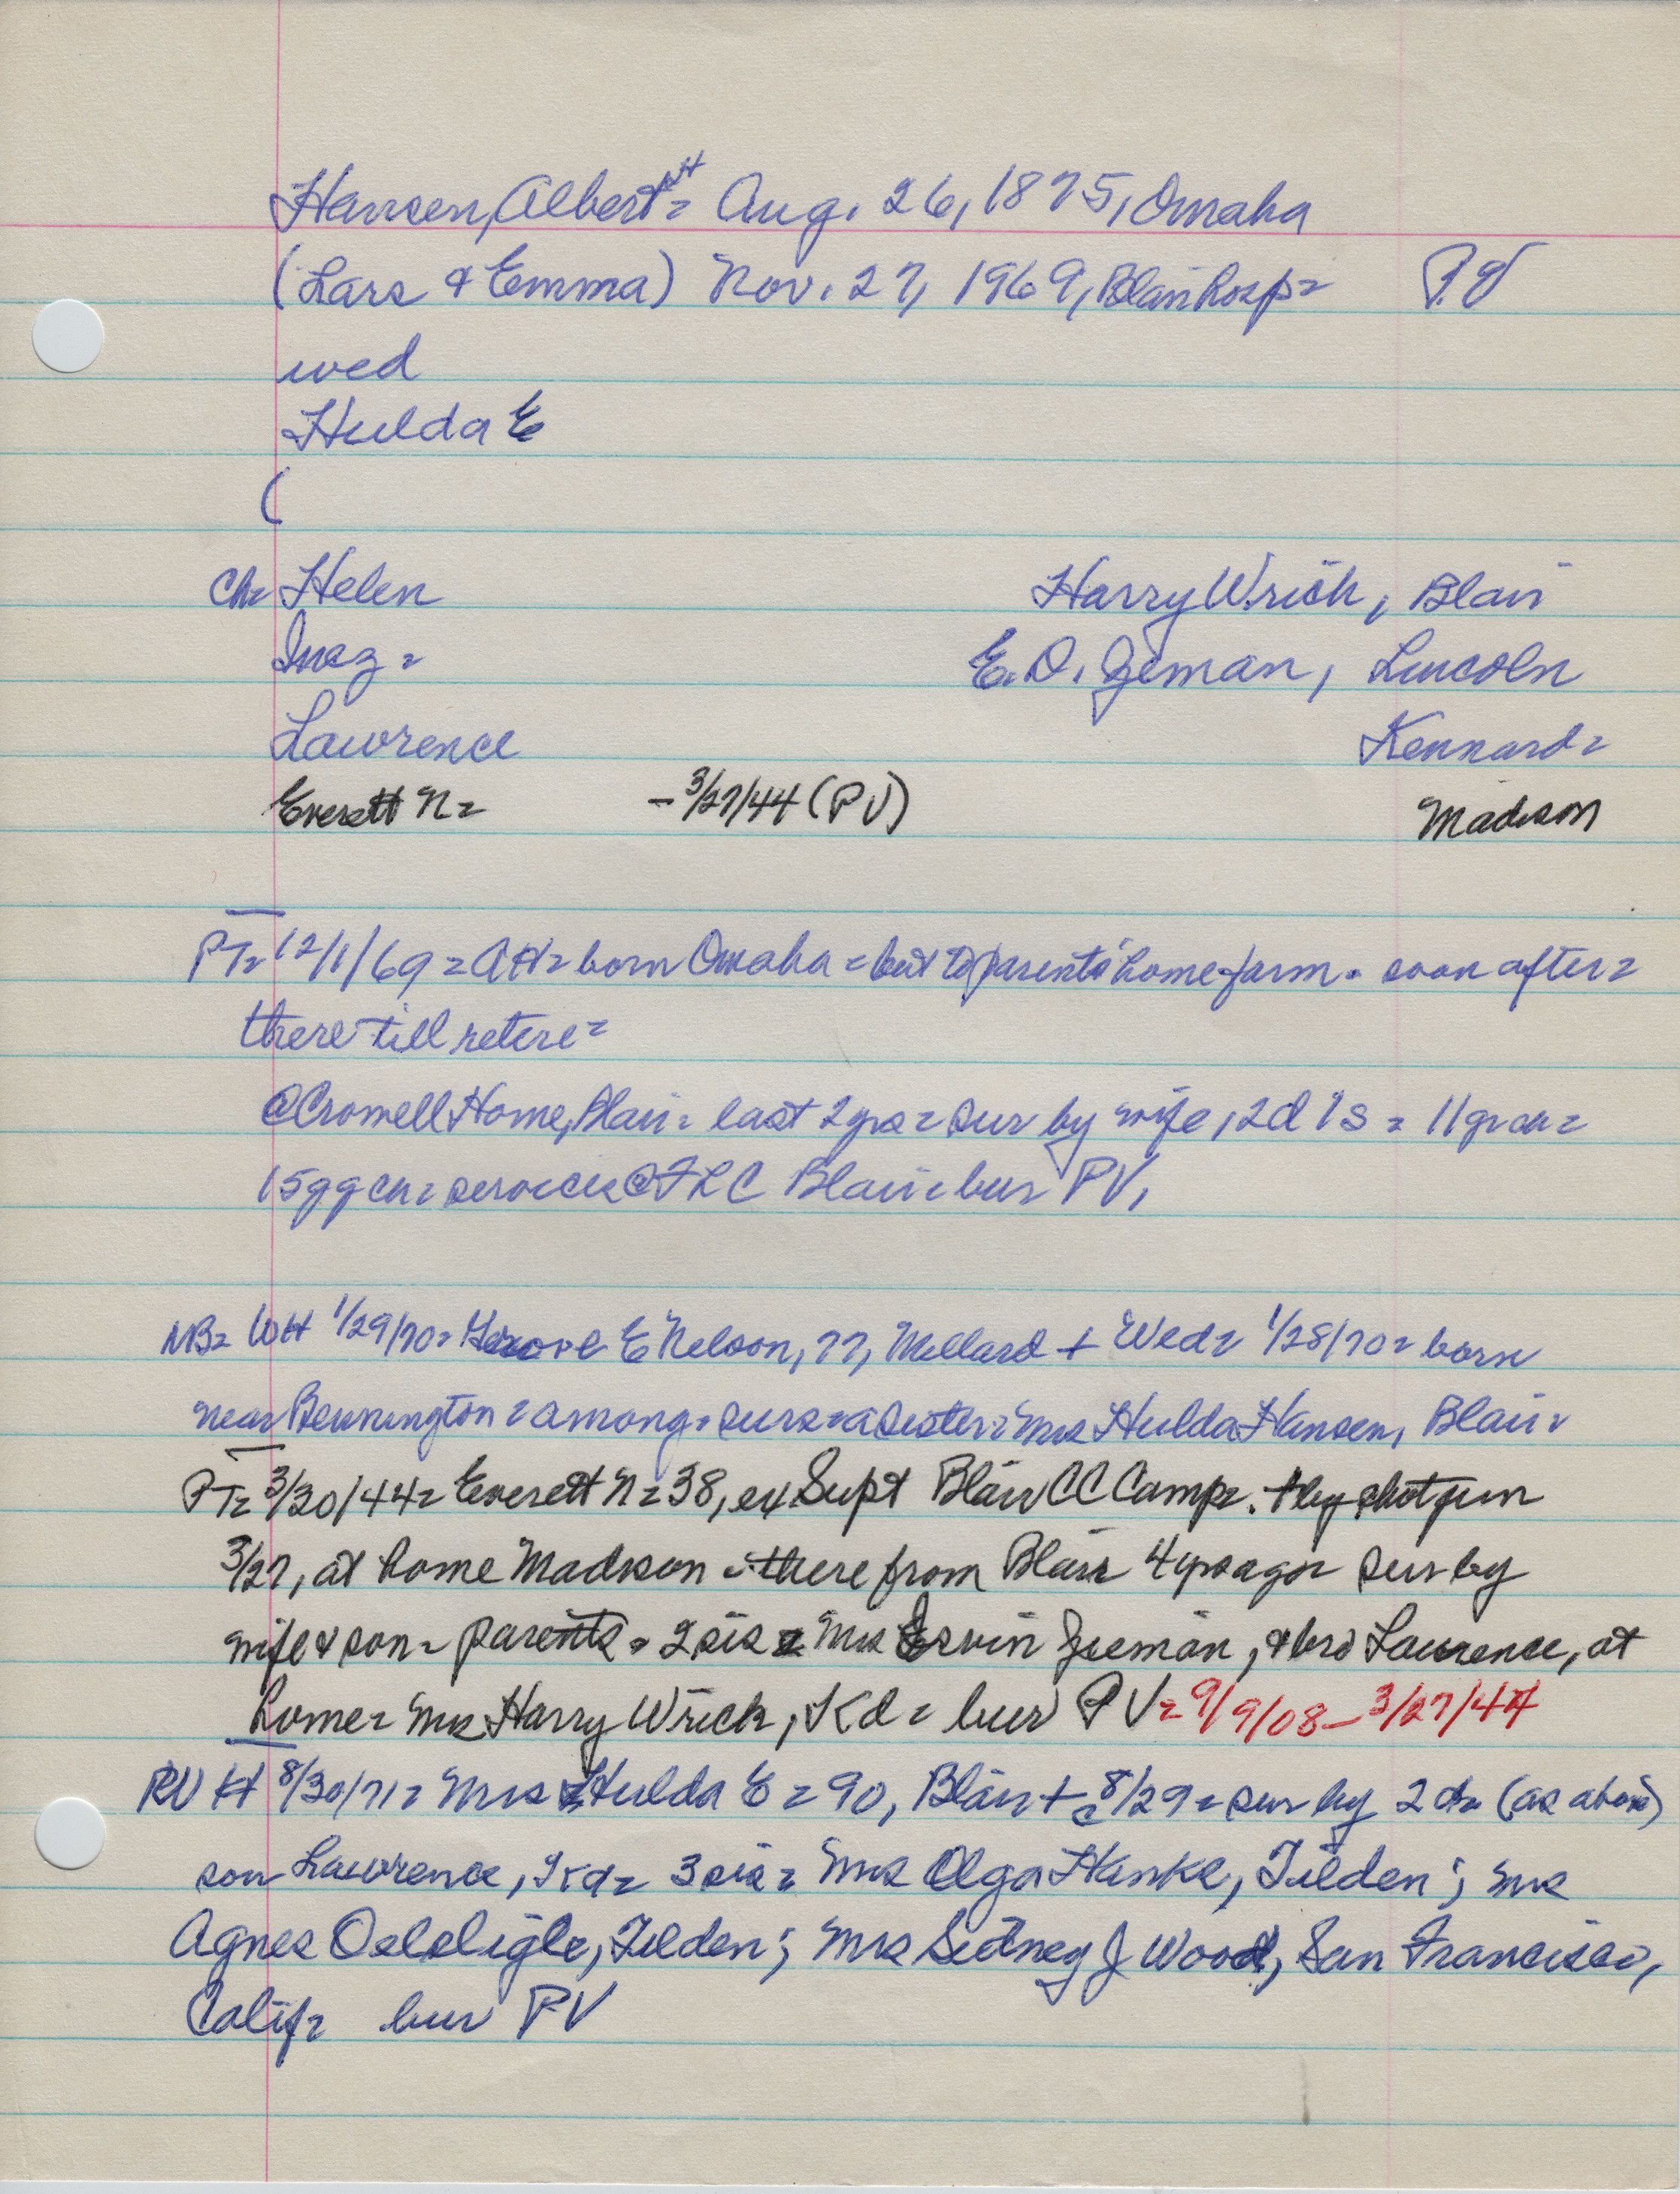 Hansen, Albert = Aug. 26, 1875, Omaha
(Lars & Emma) Nov. 27, 1969, Blair hosp = PV
wed
Hulda E
(
Ch = Helen Harry Wrich, Blair
Inez = E. O. Zeman, Lincoln
Lawrence Kennard =
Everett N = - 3/27/44 (PV) Madison
PT = 12/1/69 = AH = born Omaha = but to parents' home farm = soon after =
there till retire =
@ Crowell Home, Blair = last 2 yrs = sur by wife, 2d 1s = 11 gr ch =
15 gg ch = services @ FLC Blair = bur PV,
NB = WH 1/29/70 = E Nelson, 77, Millard + Wed = 1/28/70 = born
near Bennington = among = surs = a sister = Mrs Hulda Hansen, Blair =
PT = 3/30/44 = Everett N = 38, ex Supt Blair CC Camp = + by shotgun
3/27, at home Madison = there from Blair 4 yrs ago = sur by
wife & son = parents = 2 sis = Mrs Ervin Zeeman, & bro Lawrence, at
home = Mrs Harry Wrich, Kd = bur PV = 9/9/08 - 3/27/44
8/30/71 = Mrs Hulda E = 90, Blair + 8/29 = sur by 2 d = (as above)
son Lawrence, Kd = 3 sis = Mrs Olga Hanke, Tilden; Mrs
Agnes Oelsligle, Tilden; Mrs Sidney J Wood, San Francisco,
Calif = bur PV